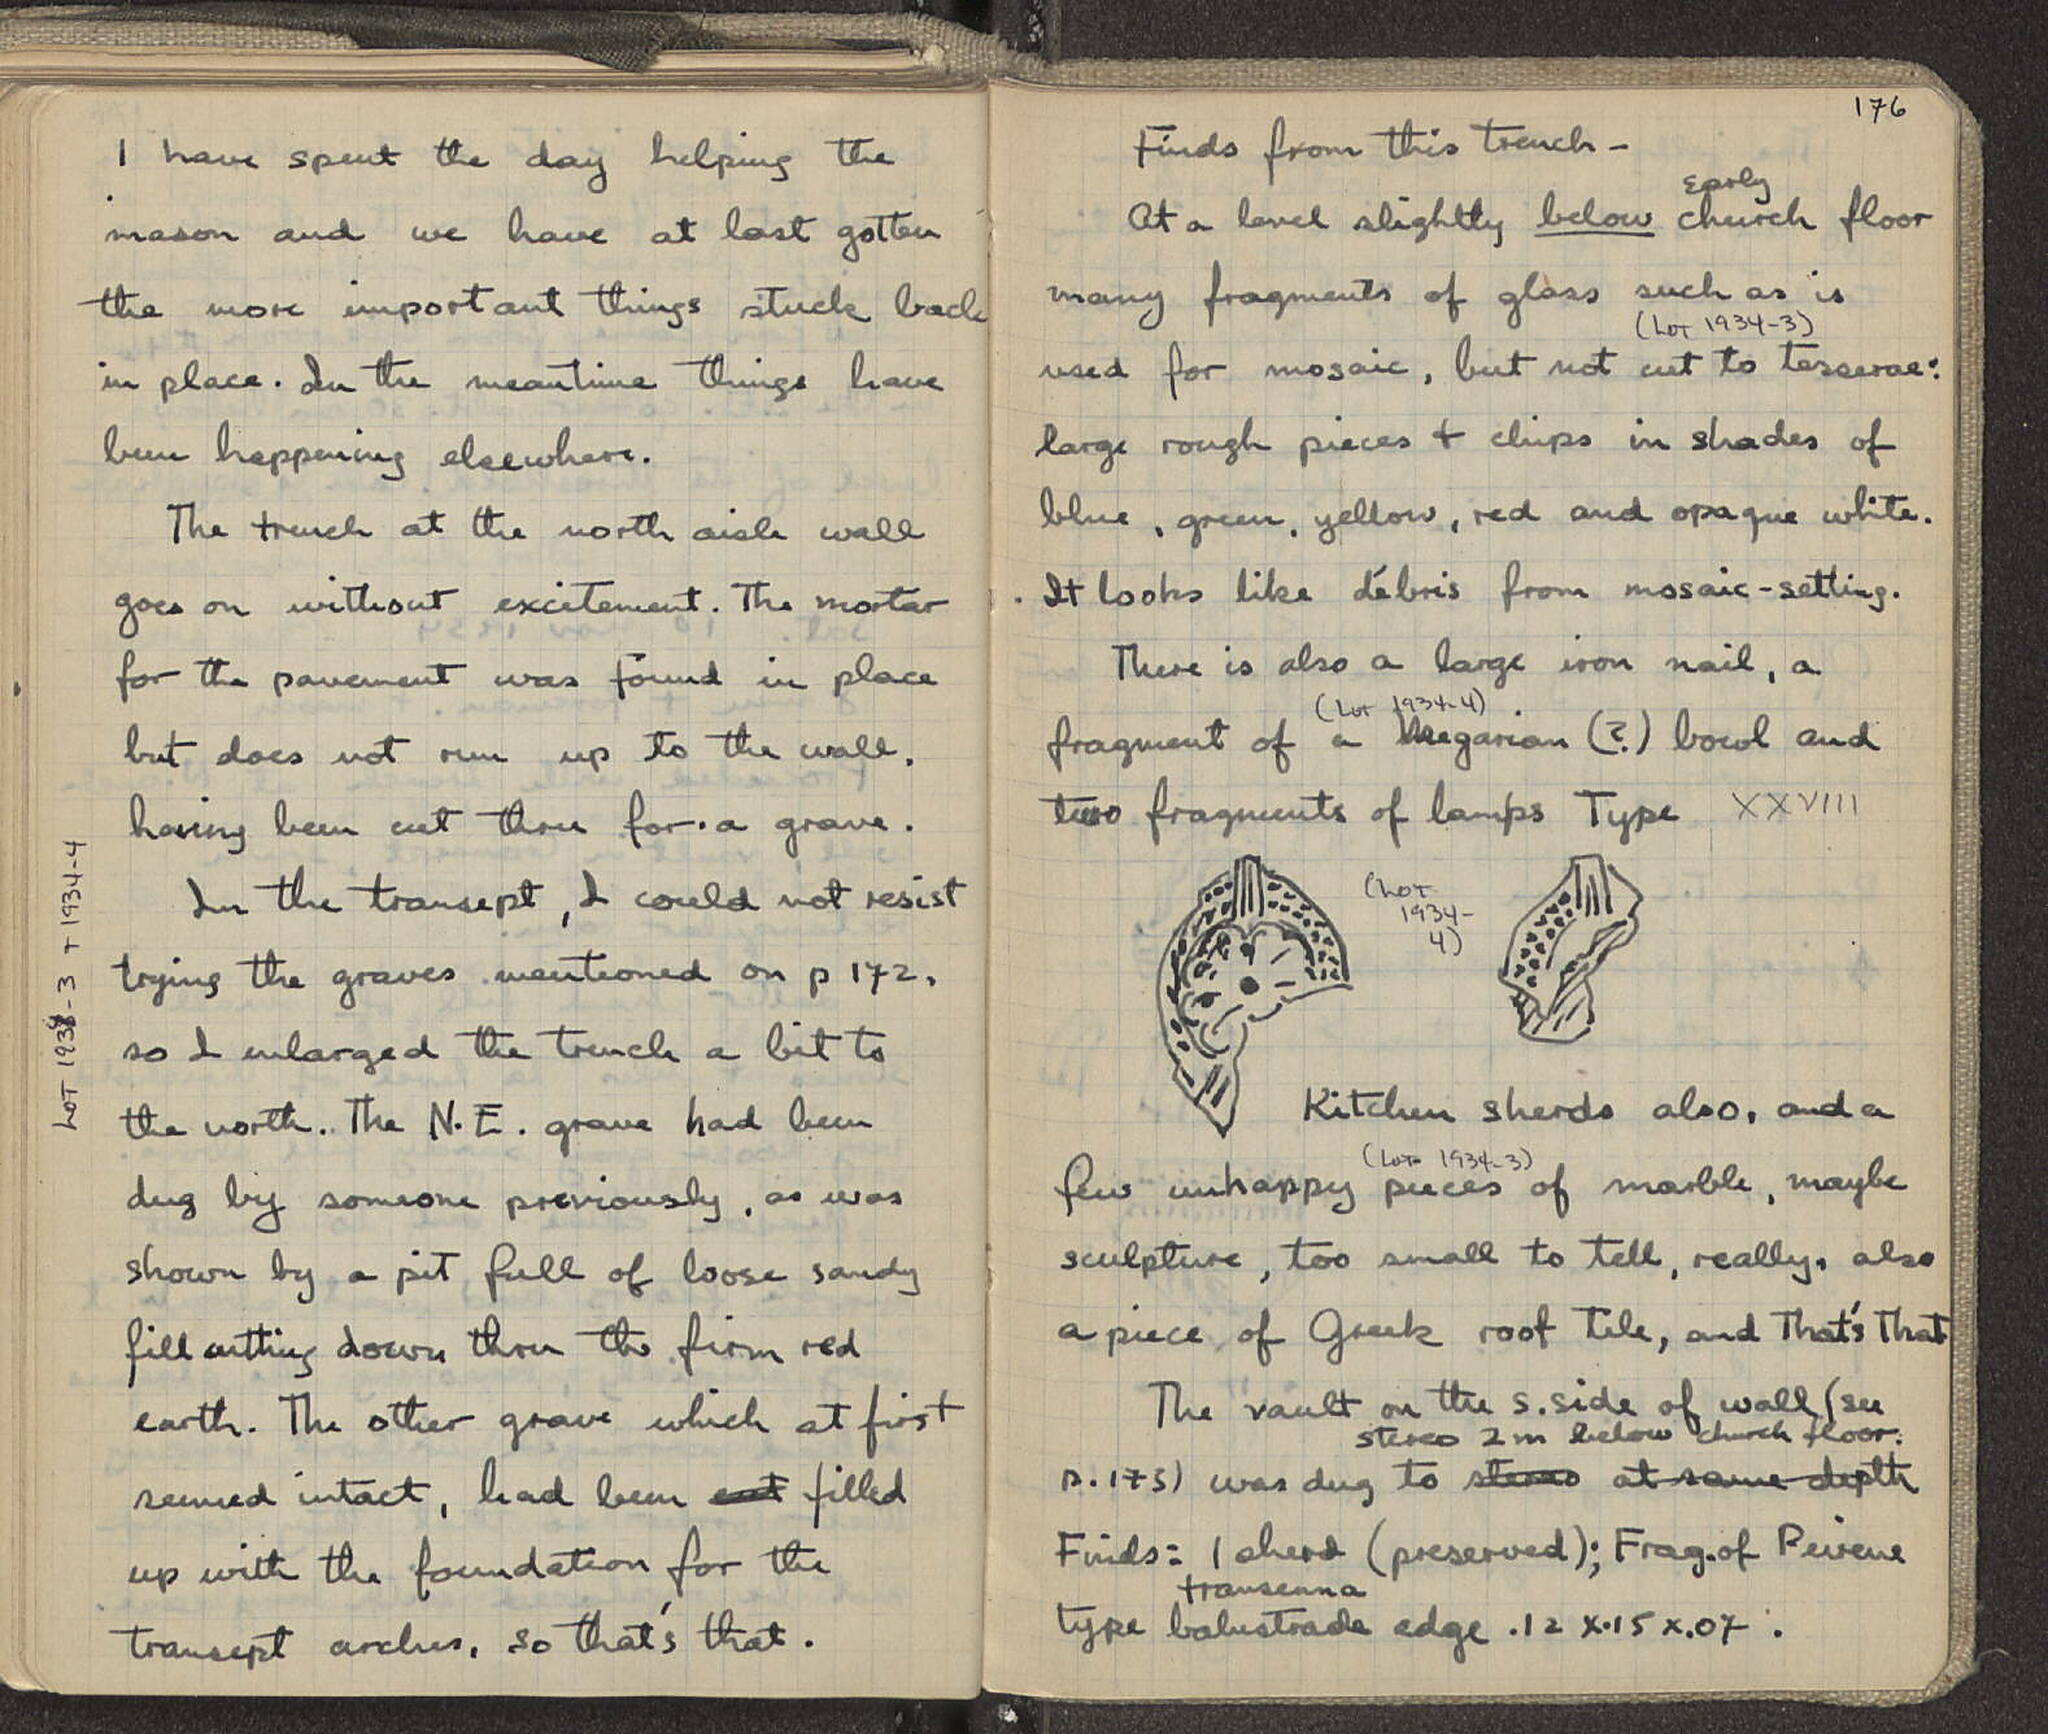 I have spent the day helping the
mason and we have at last gotten
the more important things stuck back
in place. In the meantime things have
been happening elsewhere.
The trench at the north aisle wall
goes on without excitement. The mortar
for the pavement was found in place
but does not run up to the wall,
having been cut thru for a grave.
In the transept, I could not resist
trying the graves mentioned on p 172,
so I enlarged the trench a bit to
the north. The N.E. grave had been
dug by someone previously, as was
shown by a pit full of loose sandy
fill cutting down thru the firm red
earth. The other grave which at first
seemed intact, had been cut filled
up with the foundation for the
transept arches, so that's that.
LOT 1938-3 + 1934-4
176
Finds from this trench -
early
At a level slightly below church floor
many fragments of glass such as is
(Lot 1934-3)
used for mosaic, but not cut to tesserae:
large rough pieces + chips in shades of
blue, green, yellow, red and opaque white.
It looks like débris from mosaic-setting.
There is also a large iron nail, a
(Lot 1934-4)
fragment of a Megarian (?) bowl and
two fragments of lamps Type XXVIII
(Lot
1934-
4)
Kitchen sherds also, and a
(Lot 1934-3)
few unhappy pieces of marble, maybe
sculpture, too small to tell, really, also
a piece of Greek roof tile, and that's that
The vault on the s. side of wall (see
stereo 2m below church floor.
p. 173) was dug to stereo at same depth
Finds: 1 sherd (preserved); Frag. of Peirene
transenna
type balustrade edge .12 x .15 x .07 .